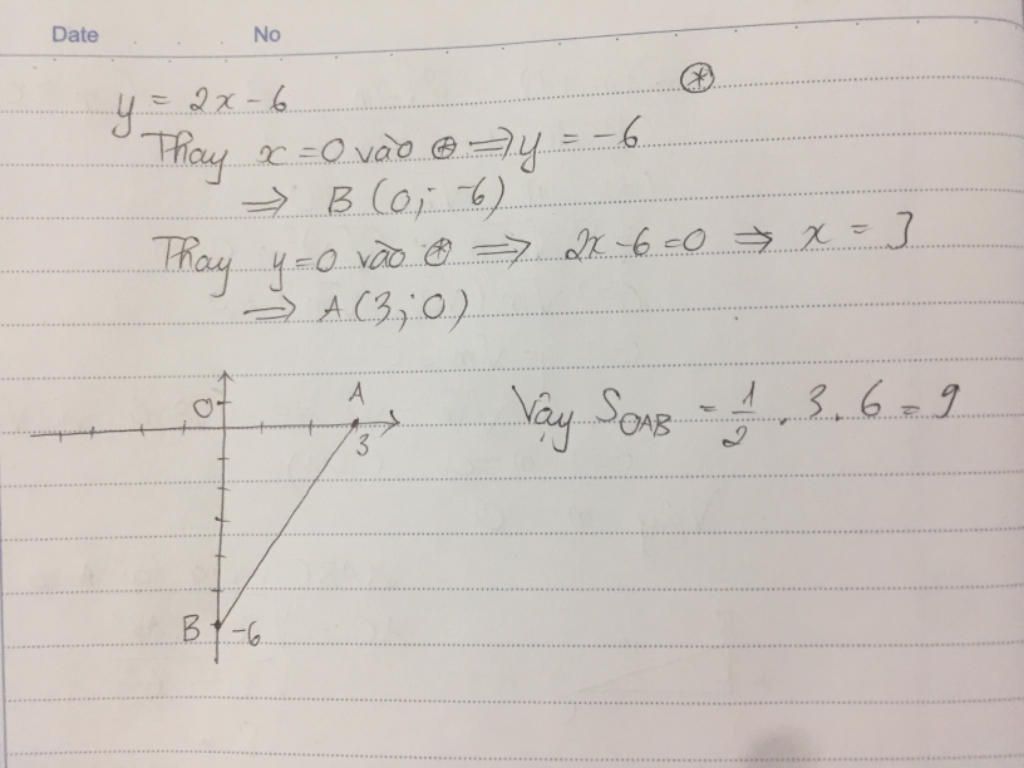 Date No
y = 2x - 6 ⊛
Thay x = 0 vào ⊛ ⇒ y = -6
⇒ B (0; -6)
Thay y = 0 vào ⊛ ⇒ 2x - 6 = 0 ⇒ x = 3
⇒ A (3; 0)
O A 3
B -6
Vậy S_OAB = 1/2 . 3 . 6 = 9